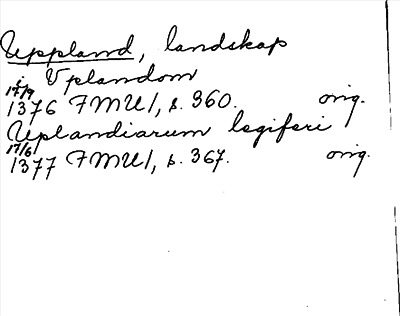 Uppland, landskap
i Uplandom
17/9
1376 FMU I, s. 360. orig.
Uplandiarum legiferi
17/6
1377 FMU I, s. 367. orig.